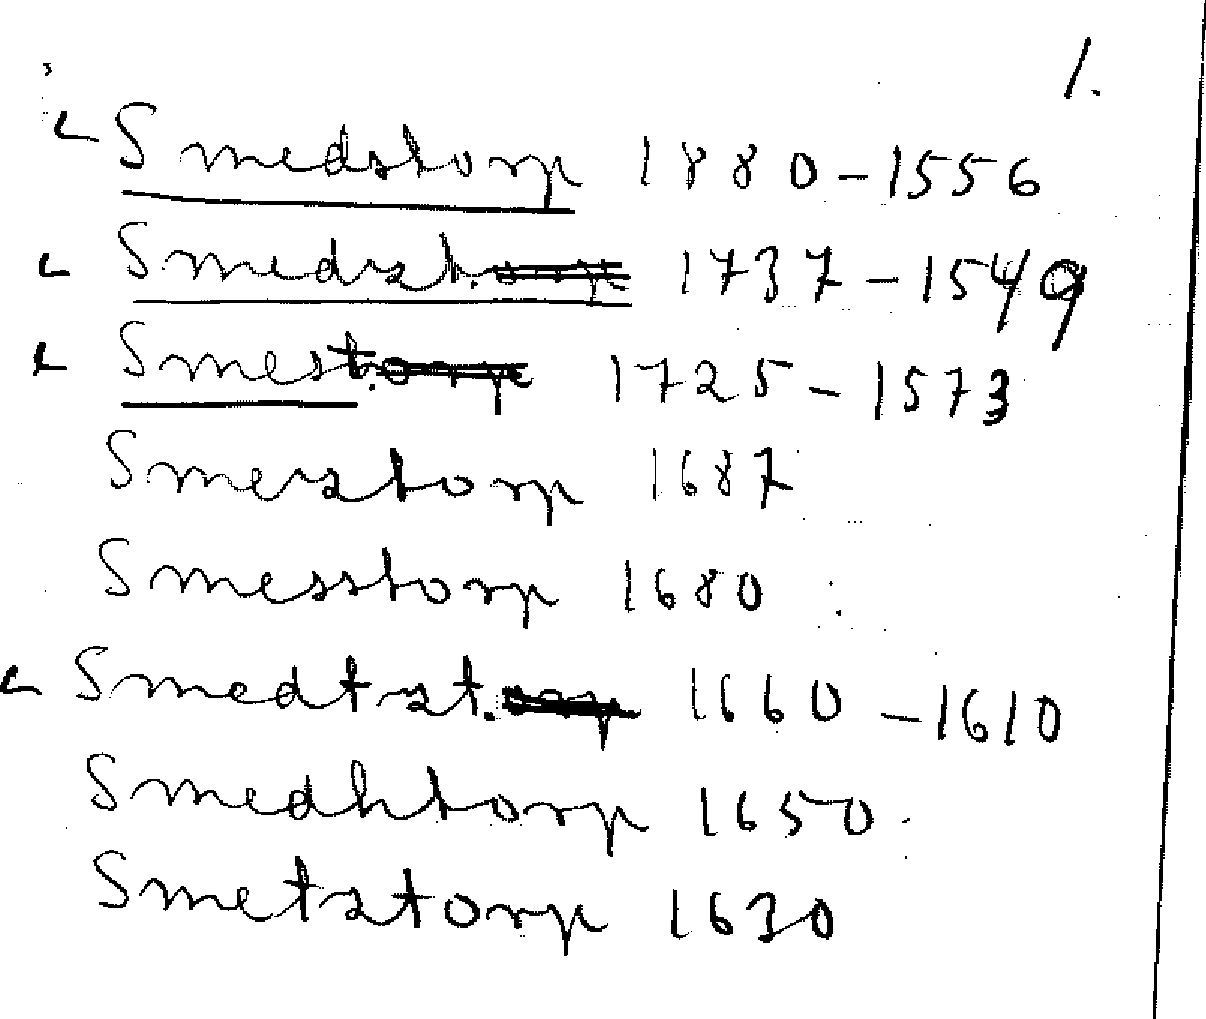 1.
Smedstorp 1880-1556
Smedzst. 1737-1549
Smest. 1725-1573
Smerstorp 1687
Smesstorp 1680
Smedtzt. 1660-1610
Smedhtorp 1650
Smetztorp 1630